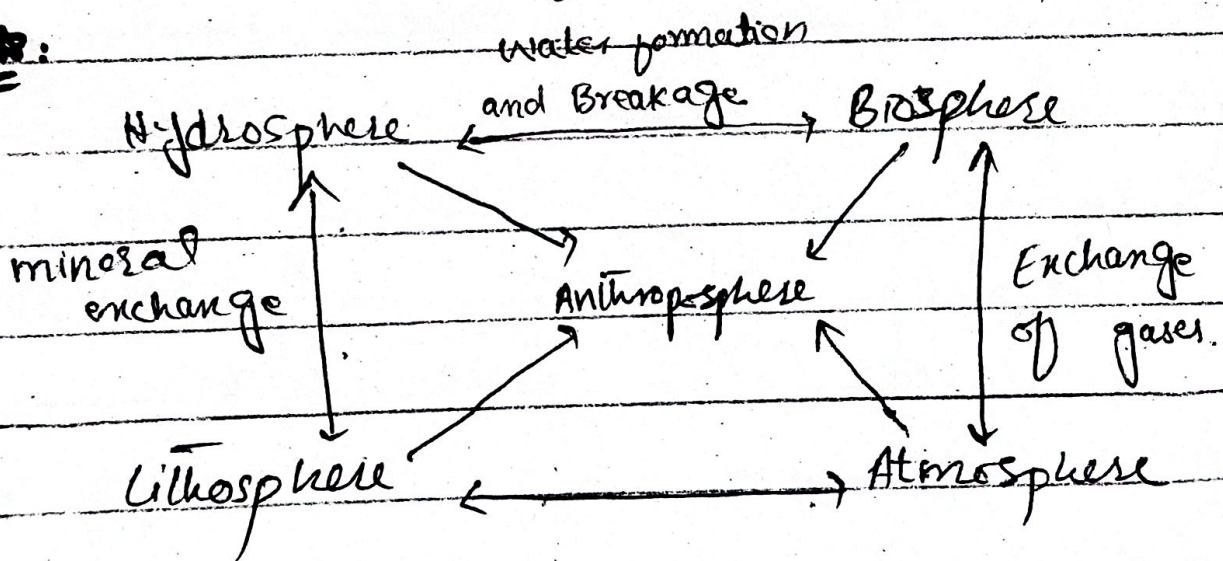 water formation
and Breakage
Hydrosphere
Biosphere
mineral
exchange
Anthroposphere
Exchange
of gases.
Lithosphere
Atmosphere